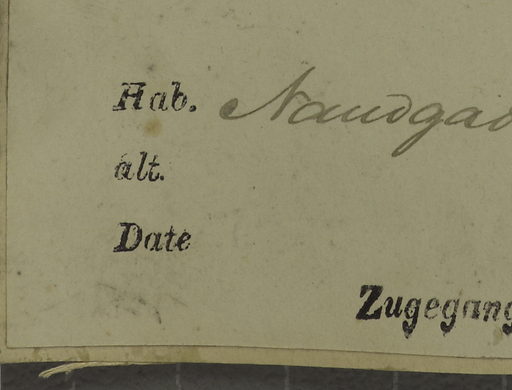 Hab. Naudgao
alt.
Date
Zugegang